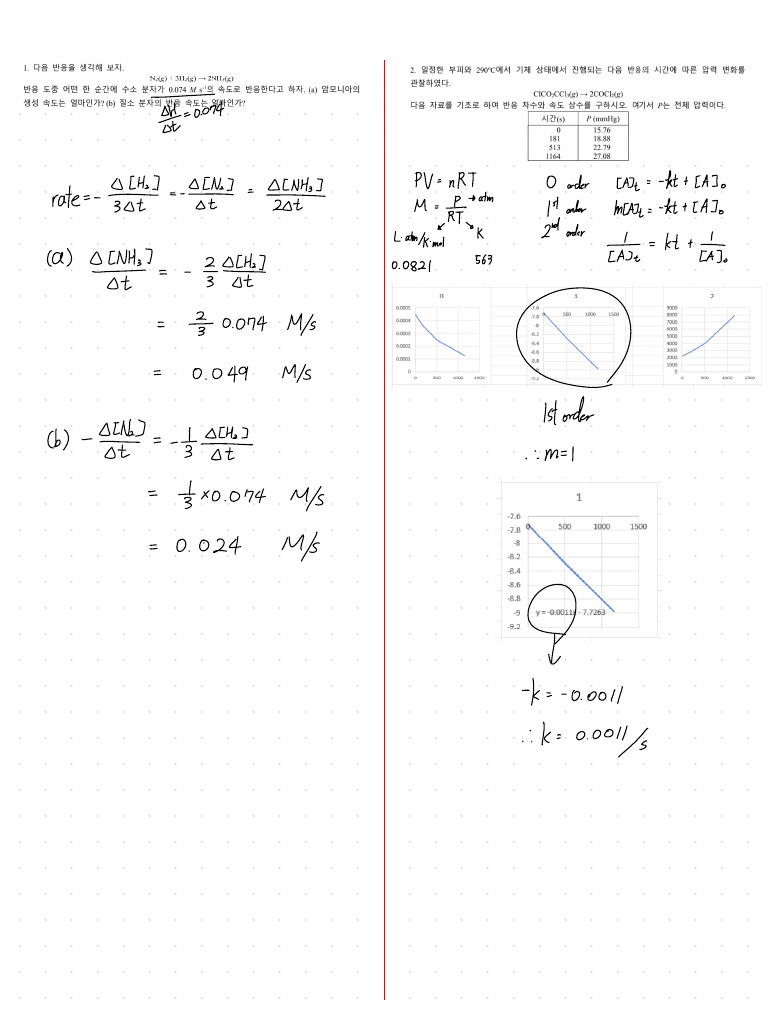 1. 다음 반응을 생각해 보자.
N₂(g) + 3H₂(g) → 2NH₃(g)
반응 도중 어떤 한 순간에 수소 분자가 0.074 M s⁻¹의 속도로 반응한다고 하자. (a) 암모니아의
생성 속도는 얼마인가? (b) 질소 분자의 반응 속도는 얼마인가?
ΔH/Δt = 0.074
rate = - Δ[H₂]/3Δt = - Δ[N₂]/Δt = Δ[NH₃]/2Δt
(a) Δ[NH₃]/Δt = - 2/3 Δ[H₂]/Δt
= 2/3 0.074 M/s
= 0.049 M/s
(b) - Δ[N₂]/Δt = - 1/3 Δ[H₂]/Δt
= 1/3 × 0.074 M/s
= 0.024 M/s
2. 일정한 부피와 290°C에서 기체 상태에서 진행되는 다음 반응의 시간에 따른 압력 변화를
관찰하였다.
ClCO₂CCl₃(g) → 2COCl₂(g)
다음 자료를 기초로 하여 반응 차수와 속도 상수를 구하시오. 여기서 P는 전체 압력이다.
시간(s) P (mmHg)
0 15.76
181 18.88
513 22.79
1164 27.08
PV = nRT
M = P/RT → atm
L·atm/K·mol K
0.0821 563
0 order [A]t = -kt + [A]₀
1st order ln[A]t = -kt + [A]₀
2nd order 1/[A]t = kt + 1/[A]₀
0
0.0005
0.0004
0.0003
0.0002
0.0001
0
0 500 1000 1500
1
-7.6
-7.8 0 500 1000 1500
-8
-8.2
-8.4
-8.6
-8.8
-9
-9.2
2
9000
8000
7000
6000
5000
4000
3000
2000
1000
0
0 500 1000 1500
1st order
∴ m=1
1
-7.6
-7.8 0 500 1000 1500
-8
-8.2
-8.4
-8.6
-8.8
-9 y = -0.0011x - 7.7263
-9.2
-k = -0.0011
∴ k = 0.0011/s